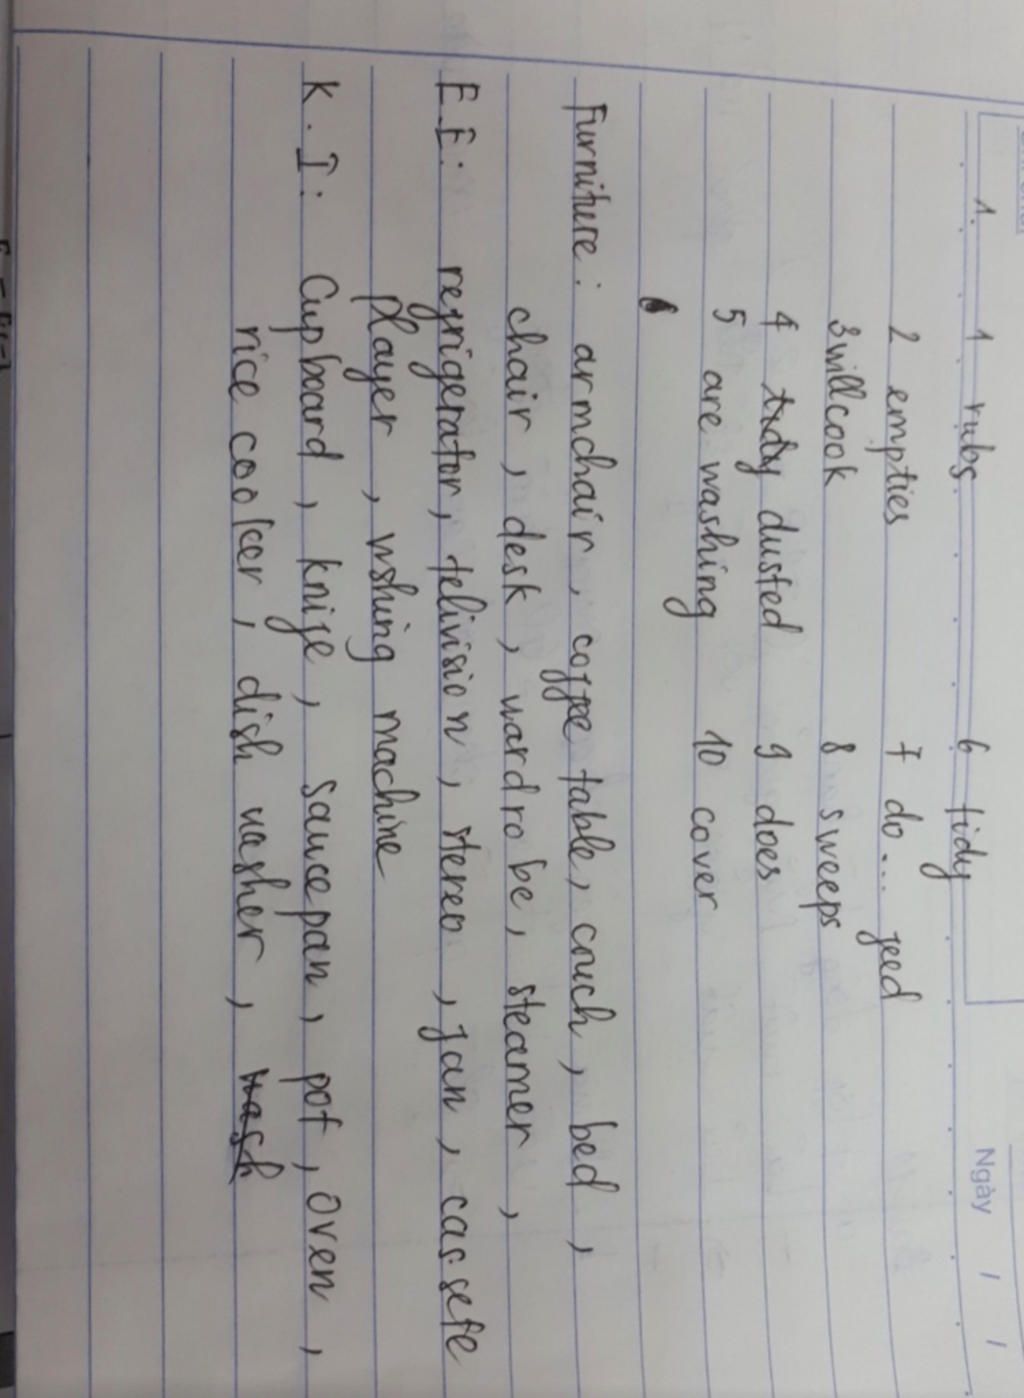 Ngày / /
1. 1. rubs 6 tidy
2 empties 7 do... feed
3 will cook 8 sweeps
4 dusted 9 does
5 are washing 10 cover
Furniture: armchair, coffee table, couch, bed,
chair, desk, wardrobe, steamer,
refrigerator, telivision, stereo, fan, cassete
player, wshing machine
K.I: Cupboard, knife, saucepan, pot, oven,
rice cooker, dish washer, wash